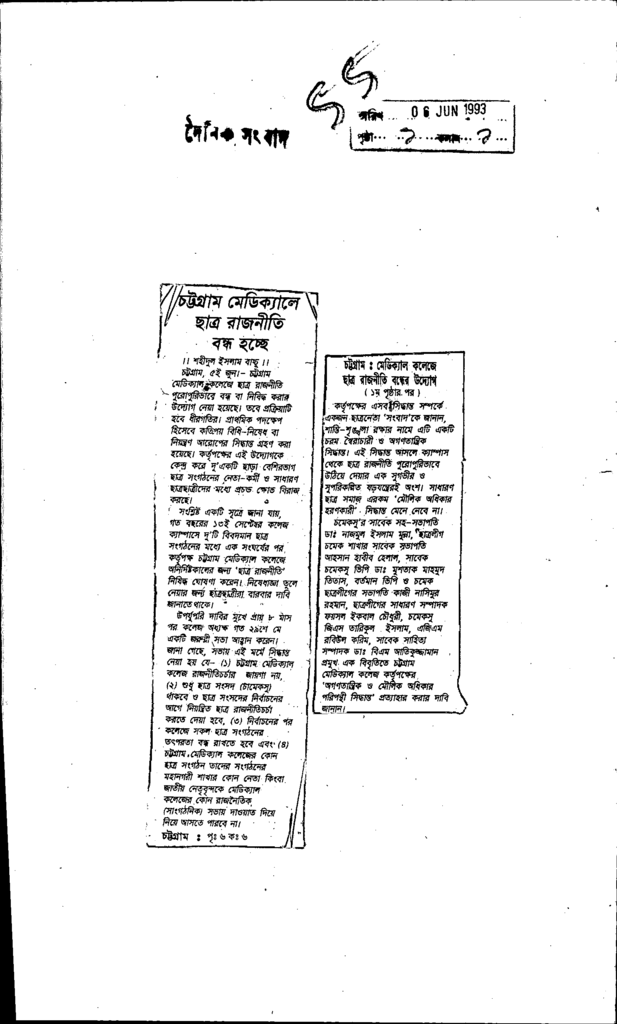 দৈনিক সংবাদ
তারিখ ... 06 JUN 1993 ...
পৃষ্ঠা... ১ ... কলাম... ১ ...
চট্টগ্রাম মেডিক্যালে
ছাত্র রাজনীতি
বন্ধ হচ্ছে
।। শহীদুল ইসলাম বাচ্চু ।।
চট্টগ্রাম, ৫ই জুন।– চট্টগ্রাম
মেডিক্যাল কলেজে ছাত্র রাজনীতি
পুরোপুরিভাবে বন্ধ বা নিষিদ্ধ করার
উদ্যোগ নেয়া হয়েছে। তবে প্রক্রিয়াটি
হবে ধীরগতির। প্রাথমিক পদক্ষেপ
হিসেবে কতিপয় বিধি-নিষেধ বা
নিয়ন্ত্রণ আরোপের সিদ্ধান্ত গ্রহণ করা
হয়েছে। কর্তৃপক্ষের এই উদ্যোগকে
কেন্দ্র করে দু'একটি ছাড়া বেশিরভাগ
ছাত্র সংগঠনের নেতা-কর্মী ও সাধারণ
ছাত্রছাত্রীদের মধ্যে প্রচন্ড ক্ষোভ বিরাজ
করছে।
সংশ্লিষ্ট একটি সূত্রে জানা যায়,
গত বছরের ১৩ই সেপ্টেম্বর কলেজ
ক্যাম্পাসে দু'টি বিবদমান ছাত্র
সংগঠনের মধ্যে এক সংঘর্ষের পর
কর্তৃপক্ষ চট্টগ্রাম মেডিক্যাল কলেজে
অনির্দিষ্টকালের জন্য 'ছাত্র রাজনীতি'
নিষিদ্ধ ঘোষণা করেন। নিষেধাজ্ঞা তুলে
নেয়ার জন্য ছাত্রছাত্রীরা বারবার দাবি
জানাতে থাকে।
উপর্যুপরি দাবির মুখে প্রায় ৮ মাস
পর কলেজ অধ্যক্ষ গত ২৯শে মে
একটি জরুরী সভা আহ্বান করেন।
জানা গেছে, সভায় এই মর্মে সিদ্ধান্ত
নেয়া হয় যে– (১) চট্টগ্রাম মেডিক্যাল
কলেজ রাজনীতিচর্চার জায়গা নয়,
(২) শুধু ছাত্র সংসদ (চামেকসু)
থাকবে ও ছাত্র সংসদের নির্বাচনের
আগে নিয়ন্ত্রিত ছাত্র রাজনীতিচর্চা
করতে দেয়া হবে, (৩) নির্বাচনের পর
কলেজে সকল ছাত্র সংগঠনের
তৎপরতা বন্ধ রাখতে হবে এবং (৪)
চট্টগ্রাম মেডিক্যাল কলেজের কোন
ছাত্র সংগঠন তাদের সংগঠনের
মহানগরী শাখার কোন নেতা কিংবা
জাতীয় নেতৃবৃন্দকে মেডিক্যাল
কলেজের কোন রাজনৈতিক
(সাংগঠনিক) সভায় দাওয়াত দিয়ে
নিয়ে আসতে পারবে না।
চট্টগ্রাম : পৃঃ ৬ কঃ ৬
চট্টগ্রাম : মেডিক্যাল কলেজে
ছাত্র রাজনীতি বন্ধের উদ্যোগ
( ১ম পৃষ্ঠার পর )
কর্তৃপক্ষের এসব সিদ্ধান্ত সম্পর্কে
একজন ছাত্রনেতা 'সংবাদ'কে জানান,
শান্তি-শৃঙ্খলা রক্ষার নামে এটি একটি
চরম স্বৈরাচারী ও অগণতান্ত্রিক
সিদ্ধান্ত। এই সিদ্ধান্ত আসলে ক্যাম্পাস
থেকে ছাত্র রাজনীতি পুরোপুরিভাবে
উঠিয়ে দেয়ার এক সুগভীর ও
সুপরিকল্পিত ষড়যন্ত্রেরই অংশ। সাধারণ
ছাত্র সমাজ এরকম 'মৌলিক অধিকার
হরণকারী' সিদ্ধান্ত মেনে নেবে না।
চমেকসু'র সাবেক সহ-সভাপতি
ডাঃ নাজমুল ইসলাম মুন্না, ছাত্রলীগ
চমেক শাখার সাবেক সভাপতি
আহসান হাবীব হেলাল, সাবেক
চমেকসু ভিপি ডাঃ মুশতাক মাহমুদ
তিতাস, বর্তমান ভিপি ও চমেক
ছাত্রলীগের সভাপতি কাজী নাসিমুর
রহমান, ছাত্রলীগের সাধারণ সম্পাদক
ফয়সল ইকবাল চৌধুরী, চমেকসু
জিএস তারিকুল ইসলাম, এজিএম
রবিউল করিম, সাবেক সাহিত্য
সম্পাদক ডাঃ বিএম আতিকুজ্জামান
প্রমুখ এক বিবৃতিতে চট্টগ্রাম
মেডিক্যাল কলেজ কর্তৃপক্ষের
'অগণতান্ত্রিক ও মৌলিক অধিকার
পরিপন্থী সিদ্ধান্ত' প্রত্যাহার করার দাবি
জানান।